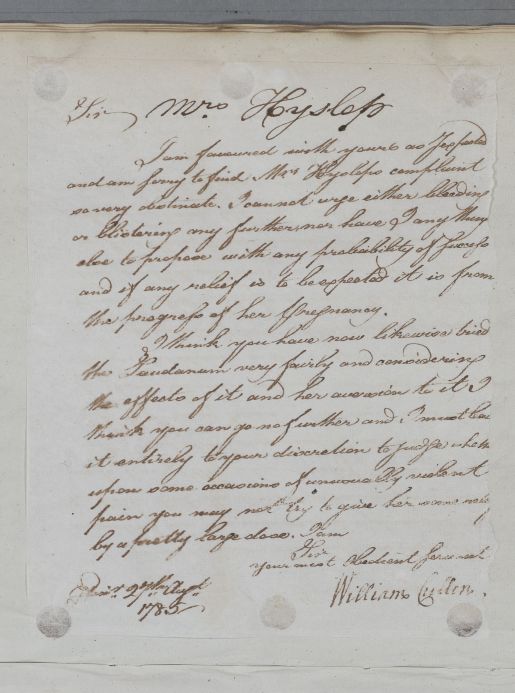 Sir Mrs. Hyslop
I am favoured with yours as I expected
and am sorry to find Mrs Hyslops complaint
so very obstinate. I cannot urge either bleeding
or blistering any further nor have I any thing
else to propose with any probability of success
and if any relief is to be expected it is from
the progress of her Pregnancy.
I think you have now likewise tried
the Laudanum very fairly and considering
the effects of it and her aversion to it I
think you can go no further and I must leave
it entirely to your discretion to judge whether
upon some occasions of unusually violent
pain you may not try to give her some relief
by a pretty large dose. I am
Sir
your most obedient servant
William Cullen.
Edinr. 27th Augt
1785